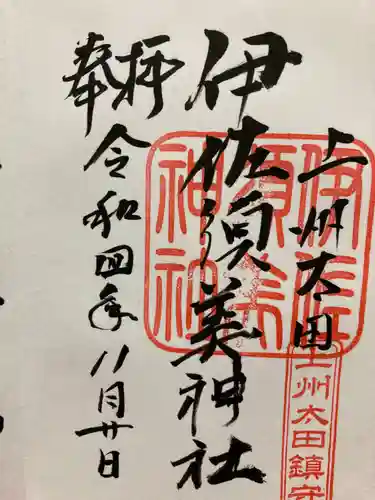 奉拝
上州太田
伊佐須美神社
令和四年八月廿日
伊佐須美神社
上州太田鎮守